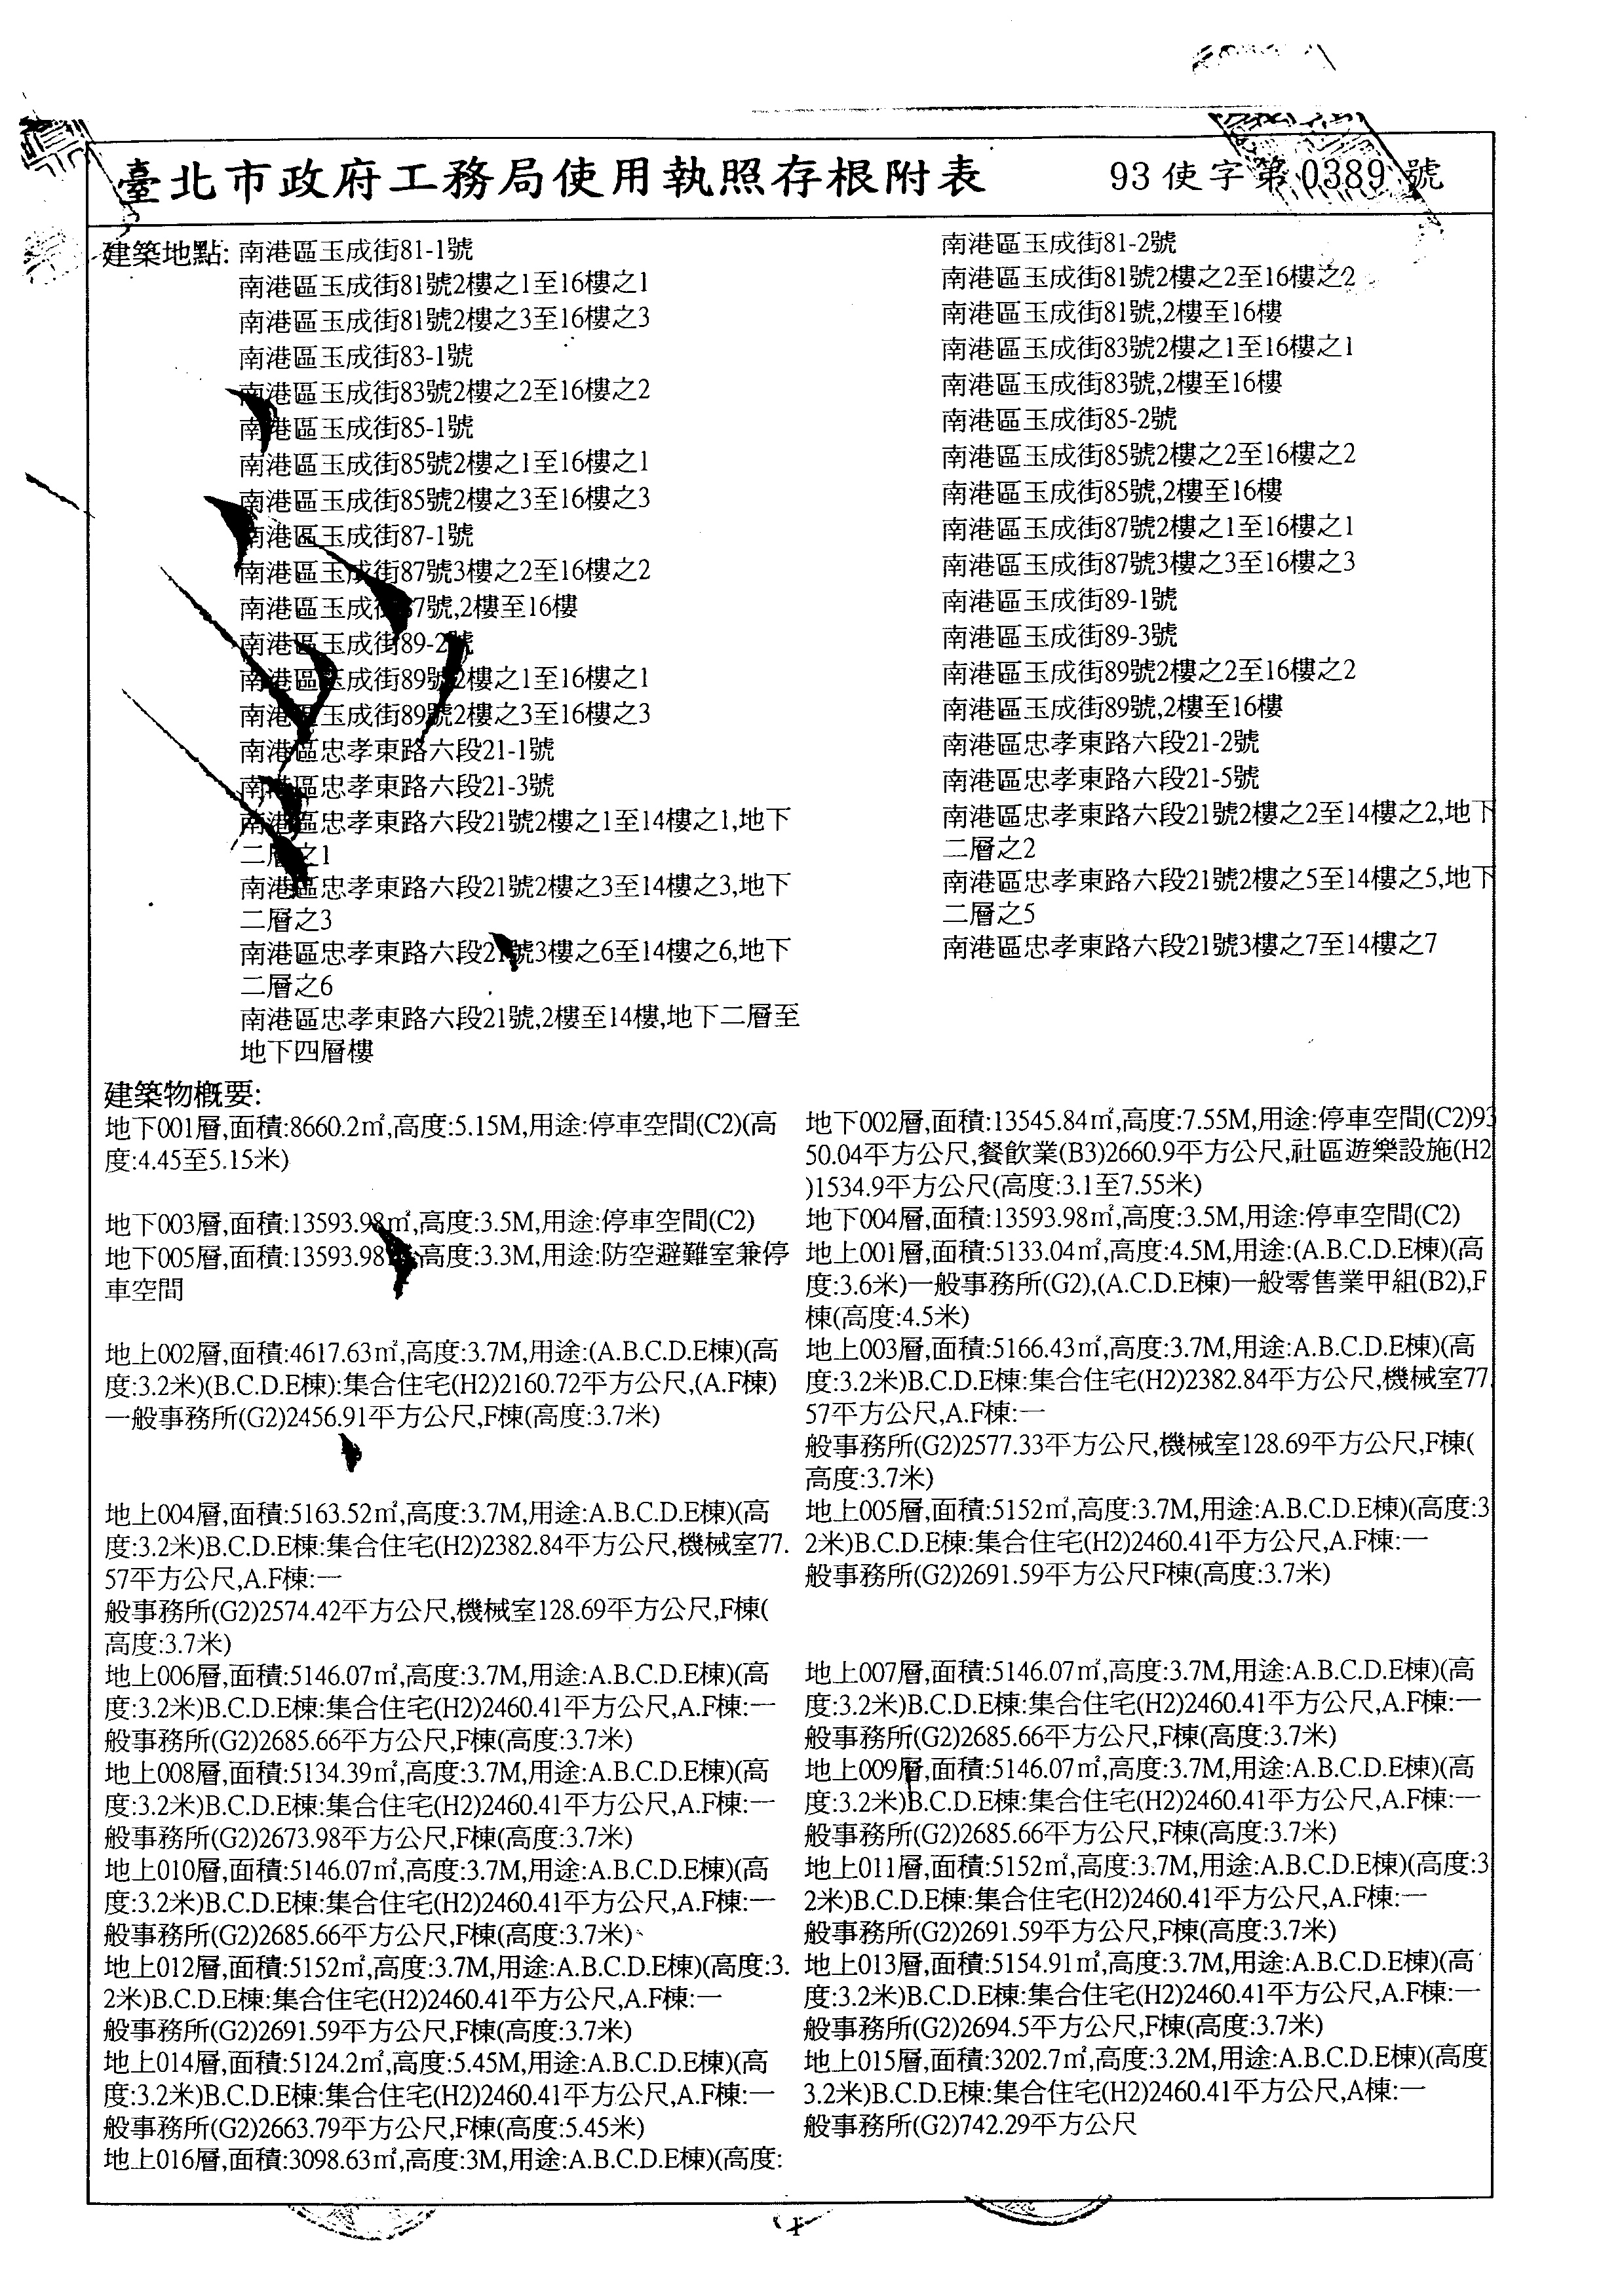 臺北市政府工務局使用執照存根附表
93使字第0389號
建築地點:
南港區玉成街81-1號
南港區玉成街81-2號
南港區玉成街81號2樓之1至16樓之1
南港區玉成街81號2樓之2至16樓之2
南港區玉成街81號2樓之3至16樓之3
南港區玉成街81號,2樓至16樓
南港區玉成街83-1號
南港區玉成街83號2樓之1至16樓之1
南港區玉成街83號2樓之2至16樓之2
南港區玉成街83號,2樓至16樓
南港區玉成街85-1號
南港區玉成街85-2號
南港區玉成街85號2樓之1至16樓之1
南港區玉成街85號2樓之2至16樓之2
南港區玉成街85號2樓之3至16樓之3
南港區玉成街85號,2樓至16樓
南港區玉成街87-1號
南港區玉成街87號2樓之1至16樓之1
南港區玉成街87號3樓之2至16樓之2
南港區玉成街87號3樓之3至16樓之3
南港區玉成街87號,2樓至16樓
南港區玉成街89-1號
南港區玉成街89-2號
南港區玉成街89-3號
南港區玉成街89號2樓之1至16樓之1
南港區玉成街89號2樓之2至16樓之2
南港區玉成街89號2樓之3至16樓之3
南港區玉成街89號,2樓至16樓
南港區忠孝東路六段21-1號
南港區忠孝東路六段21-2號
南港區忠孝東路六段21-3號
南港區忠孝東路六段21-5號
南港區忠孝東路六段21號2樓之1至14樓之1,地下
二層之1
南港區忠孝東路六段21號2樓之2至14樓之2,地下
二層之2
南港區忠孝東路六段21號2樓之3至14樓之3,地下
二層之3
南港區忠孝東路六段21號2樓之5至14樓之5,地下
二層之5
南港區忠孝東路六段21號3樓之6至14樓之6,地下
二層之6
南港區忠孝東路六段21號3樓之7至14樓之7
南港區忠孝東路六段21號,2樓至14樓,地下二層至
地下四層樓
建築物概要:
地下001層,面積:8660.2㎡,高度:5.15M,用途:停車空間(C2)(高
度:4.45至5.15米)
地下002層,面積:13545.84㎡,高度:7.55M,用途:停車空間(C2)93
50.04平方公尺,餐飲業(B3)2660.9平方公尺,社區遊樂設施(H2
)1534.9平方公尺(高度:3.1至7.55米)
地下003層,面積:13593.98㎡,高度:3.5M,用途:停車空間(C2)
地下004層,面積:13593.98㎡,高度:3.5M,用途:停車空間(C2)
地下005層,面積:13593.98㎡,高度:3.3M,用途:防空避難室兼停
車空間
地上001層,面積:5133.04㎡,高度:4.5M,用途:(A.B.C.D.E棟)(高
度:3.6米)一般事務所(G2),(A.C.D.E棟)一般零售業甲組(B2),F
棟(高度:4.5米)
地上002層,面積:4617.63㎡,高度:3.7M,用途:(A.B.C.D.E棟)(高
度:3.2米)(B.C.D.E棟):集合住宅(H2)2160.72平方公尺,(A.F棟)
一般事務所(G2)2456.91平方公尺,F棟(高度:3.7米)
地上003層,面積:5166.43㎡,高度:3.7M,用途:A.B.C.D.E棟)(高
度:3.2米)B.C.D.E棟:集合住宅(H2)2382.84平方公尺,機械室77.
57平方公尺,A.F棟:一
般事務所(G2)2577.33平方公尺,機械室128.69平方公尺,F棟(
高度:3.7米)
地上004層,面積:5163.52㎡,高度:3.7M,用途:A.B.C.D.E棟)(高
度:3.2米)B.C.D.E棟:集合住宅(H2)2382.84平方公尺,機械室77.
57平方公尺,A.F棟:一
般事務所(G2)2574.42平方公尺,機械室128.69平方公尺,F棟(
高度:3.7米)
地上005層,面積:5152㎡,高度:3.7M,用途:A.B.C.D.E棟)(高度:3
2米)B.C.D.E棟:集合住宅(H2)2460.41平方公尺,A.F棟:一
般事務所(G2)2691.59平方公尺F棟(高度:3.7米)
地上006層,面積:5146.07㎡,高度:3.7M,用途:A.B.C.D.E棟)(高
度:3.2米)B.C.D.E棟:集合住宅(H2)2460.41平方公尺,A.F棟:一
般事務所(G2)2685.66平方公尺,F棟(高度:3.7米)
地上007層,面積:5146.07㎡,高度:3.7M,用途:A.B.C.D.E棟)(高
度:3.2米)B.C.D.E棟:集合住宅(H2)2460.41平方公尺,A.F棟:一
般事務所(G2)2685.66平方公尺,F棟(高度:3.7米)
地上008層,面積:5134.39㎡,高度:3.7M,用途:A.B.C.D.E棟)(高
度:3.2米)B.C.D.E棟:集合住宅(H2)2460.41平方公尺,A.F棟:一
般事務所(G2)2673.98平方公尺,F棟(高度:3.7米)
地上009層,面積:5146.07㎡,高度:3.7M,用途:A.B.C.D.E棟)(高
度:3.2米)B.C.D.E棟:集合住宅(H2)2460.41平方公尺,A.F棟:一
般事務所(G2)2685.66平方公尺,F棟(高度:3.7米)
地上010層,面積:5146.07㎡,高度:3.7M,用途:A.B.C.D.E棟)(高
度:3.2米)B.C.D.E棟:集合住宅(H2)2460.41平方公尺,A.F棟:一
般事務所(G2)2685.66平方公尺,F棟(高度:3.7米)
地上011層,面積:5152㎡,高度:3.7M,用途:A.B.C.D.E棟)(高度:3
2米)B.C.D.E棟:集合住宅(H2)2460.41平方公尺,A.F棟:一
般事務所(G2)2691.59平方公尺,F棟(高度:3.7米)
地上012層,面積:5152㎡,高度:3.7M,用途:A.B.C.D.E棟)(高度:3.
2米)B.C.D.E棟:集合住宅(H2)2460.41平方公尺,A.F棟:一
般事務所(G2)2691.59平方公尺,F棟(高度:3.7米)
地上013層,面積:5154.91㎡,高度:3.7M,用途:A.B.C.D.E棟)(高
度:3.2米)B.C.D.E棟:集合住宅(H2)2460.41平方公尺,A.F棟:一
般事務所(G2)2694.5平方公尺,F棟(高度:3.7米)
地上014層,面積:5124.2㎡,高度:5.45M,用途:A.B.C.D.E棟)(高
度:3.2米)B.C.D.E棟:集合住宅(H2)2460.41平方公尺,A.F棟:一
般事務所(G2)2663.79平方公尺,F棟(高度:5.45米)
地上015層,面積:3202.7㎡,高度:3.2M,用途:A.B.C.D.E棟)(高度
3.2米)B.C.D.E棟:集合住宅(H2)2460.41平方公尺,A棟:一
般事務所(G2)742.29平方公尺
地上016層,面積:3098.63㎡,高度:3M,用途:A.B.C.D.E棟)(高度: